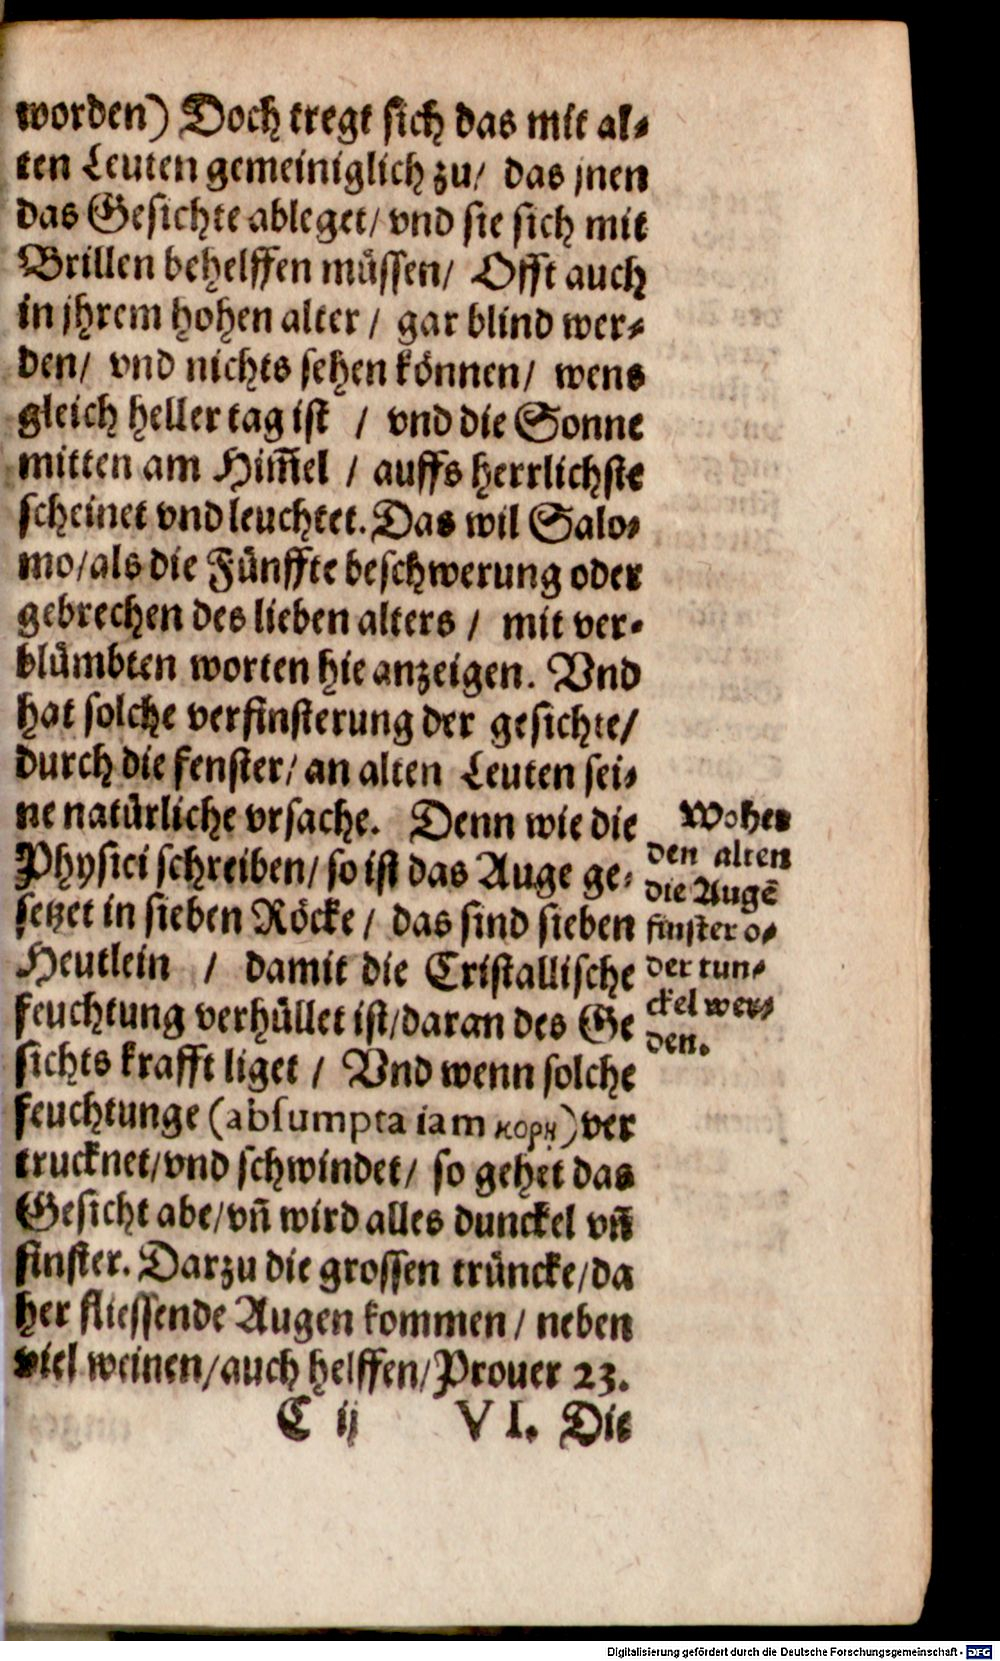 worden) Doch tregt sich das mit al⸗
ten Leuten gemeiniglich zu/ das jnen
das Gesichte ableget/ vnd sie sich mit
Brillen behelffen müssen/ Offt auch
in jhrem hohen alter / gar blind wer⸗
den/ vnd nichts sehen können/ wens
gleich heller tag ist / vnd die Sonne
mitten am Him̄el / auffs herrlichste
scheinet vnd leuchtet. Das wil Salo⸗
mo/als die Fünffte beschwerung oder
gebrechen des lieben alters / mit ver⸗
blümbten worten hie anzeigen. Vnd
hat solche verfinsterung der gesichte/
durch die fenster/ an alten Leuten sei⸗
ne natürliche vrsache. Denn wie die
Physici schreiben/ so ist das Auge ge⸗
setzet in sieben Röcke / das sind sieben
Heutlein / damit die Cristallische
feuchtung verhüllet ist/daran des Ge
sichts krafft liget / Vnd wenn solche
feuchtunge (absumpta iam κορη) ver
trucknet/vnd schwindet/ so gehet das
Gesicht abe/vn̄ wird alles dunckel vn̄
finster. Darzu die grossen trüncke/da
her fliessende Augen kommen / neben
viel weinen/auch helffen/Prouer 23.
C ij VI. Die
Woher
den alten
die Augē
finster o⸗
der tun⸗
ckel wer⸗
den.
Digitalisierung gefördert durch die Deutsche Forschungsgemeinschaft - DFG